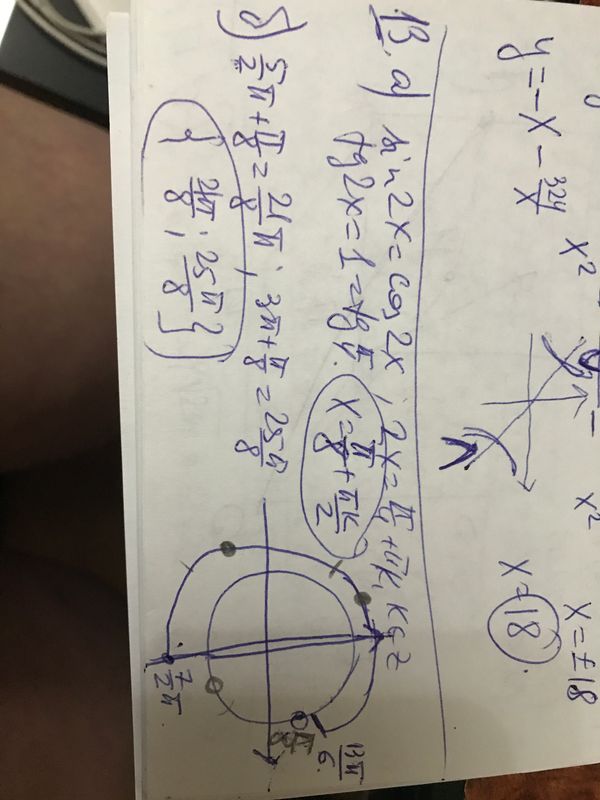 y = -x - 324/x
x²
x²
x = ±18
x = 18
13. а) sin 2x = cos 2x ; 2x = π/4 + πk, k ∈ Z
tg 2x = 1 = tg π/4. x = π/8 + πk/2
б) 5/2 π + π/8 = 21π/8 ; 3π + π/8 = 25π/8
{ 21π/8 ; 25π/8 }
13π/6
7/2 π.